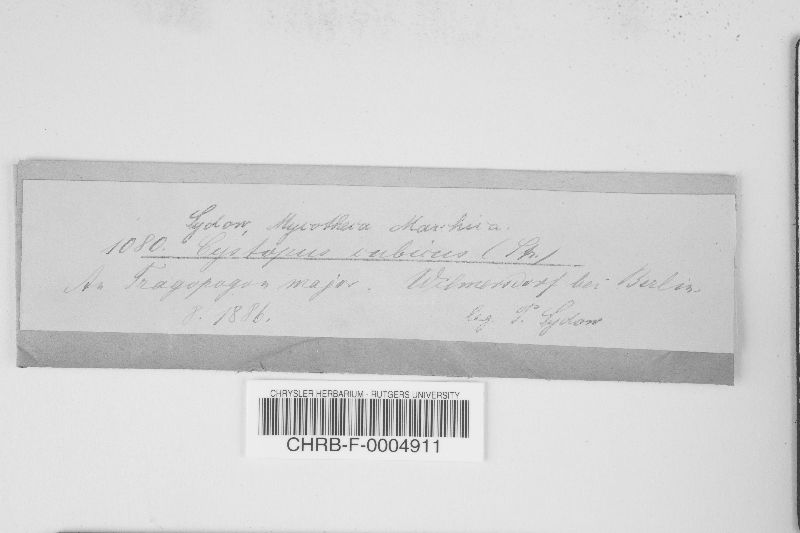 Sydow, Mycotheca Marchica.
1080. Cystopus cubicus (Str.)
An Tragopogon major. Wilmersdorf bei Berlin
8. 1886. leg. P. Sydow
CHRYSLER HERBARIUM - RUTGERS UNIVERSITY
CHRB-F-0004911